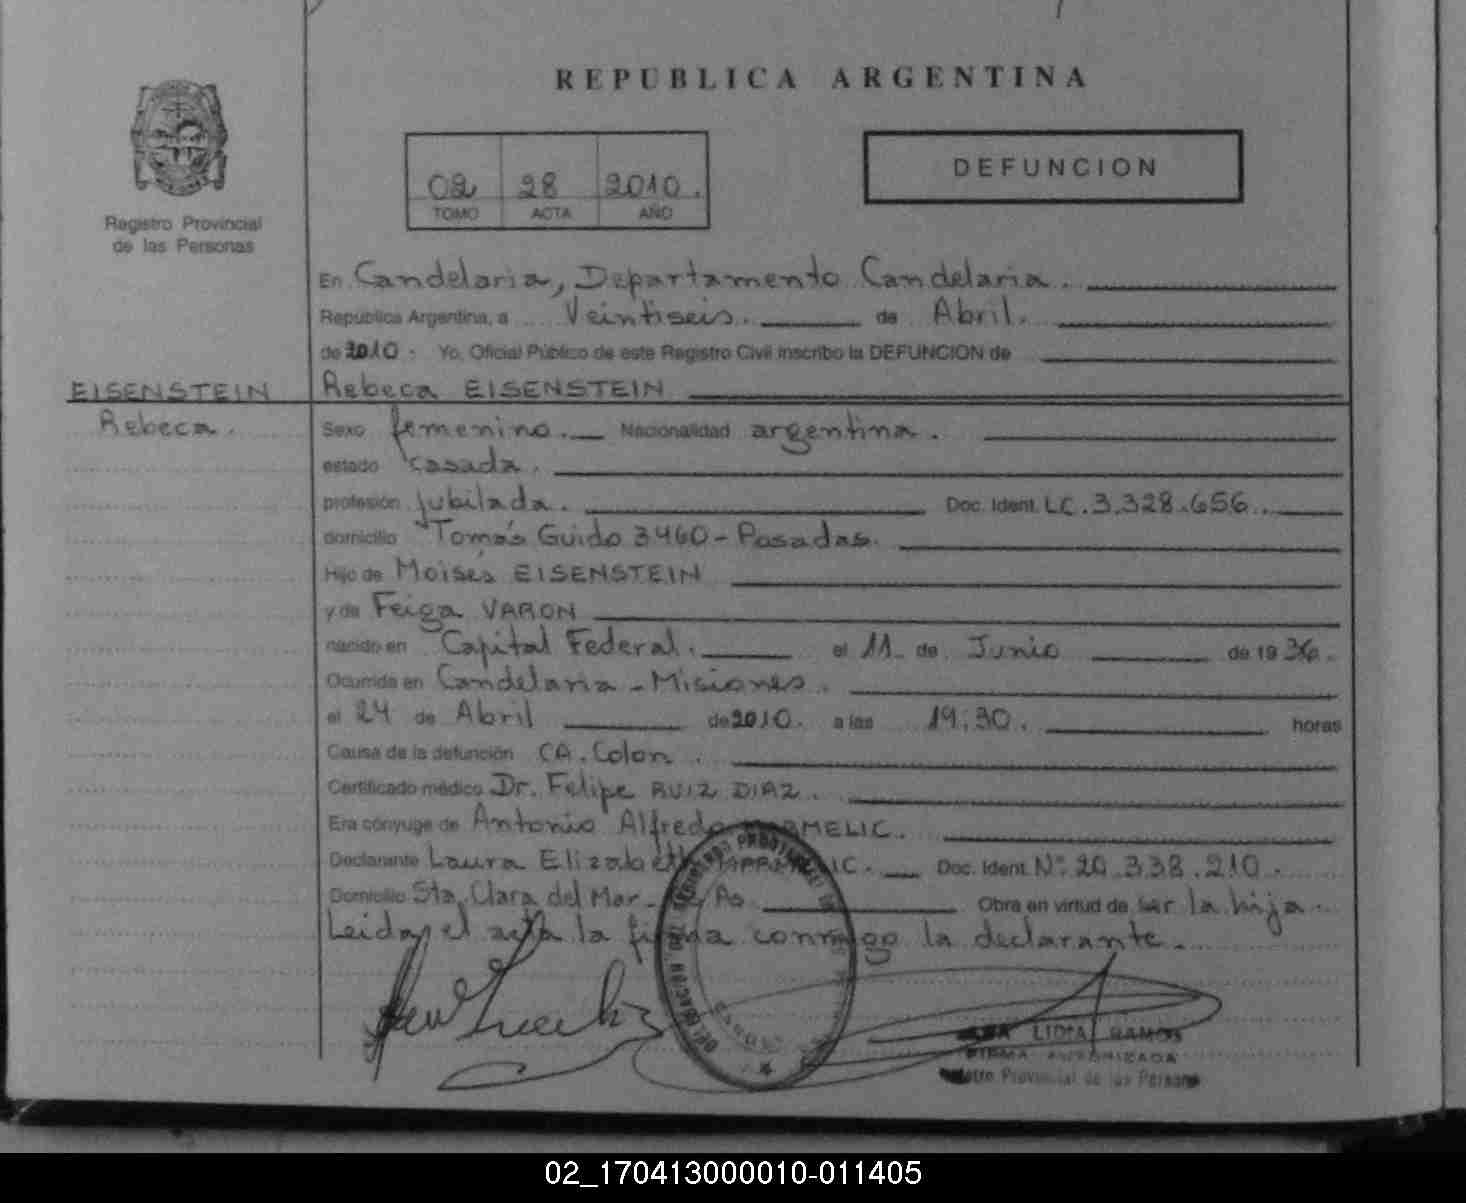 REPUBLICA ARGENTINA
02 28 2010.
TOMO ACTA AÑO
DEFUNCION
Registro Provincial
de las Personas
En Candelaria, Departamento Candelaria.
República Argentina, a Veintiseis. de Abril.
de 2010. Yo, Oficial Público de este Registro Civil inscribo la DEFUNCION de
EISENSTEIN
Rebeca.
Rebeca EISENSTEIN
Sexo femenino. Nacionalidad argentina.
estado casada.
profesión jubilada. Doc. Ident. LC. 3.328.656.
domicilio Tomás Guido 3460 - Posadas.
Hijo de Moisés EISENSTEIN
y de Feiga VARON
nacido en Capital Federal. el 11 de Junio de 1936.
Ocurrida en Candelaria - Misiones.
el 24 de Abril de 2010. a las 19:30. horas
Causa de la defunción CA. Colon.
Certificado médico Dr. Felipe RUIZ DIAZ.
Era cónyuge de Antonio Alfredo
Declarante Laura Elizabeth Doc. Ident. Nº 20.338.210.
Domicilio Sta. Clara del Mar - As. Obra en virtud de ser la hija.
Leida el acta la firma conmigo la declarante.
LIDIA RAMOS
FIRMA AUTORIZADA
Registro Provincial de las Personas
02_170413000010-011405